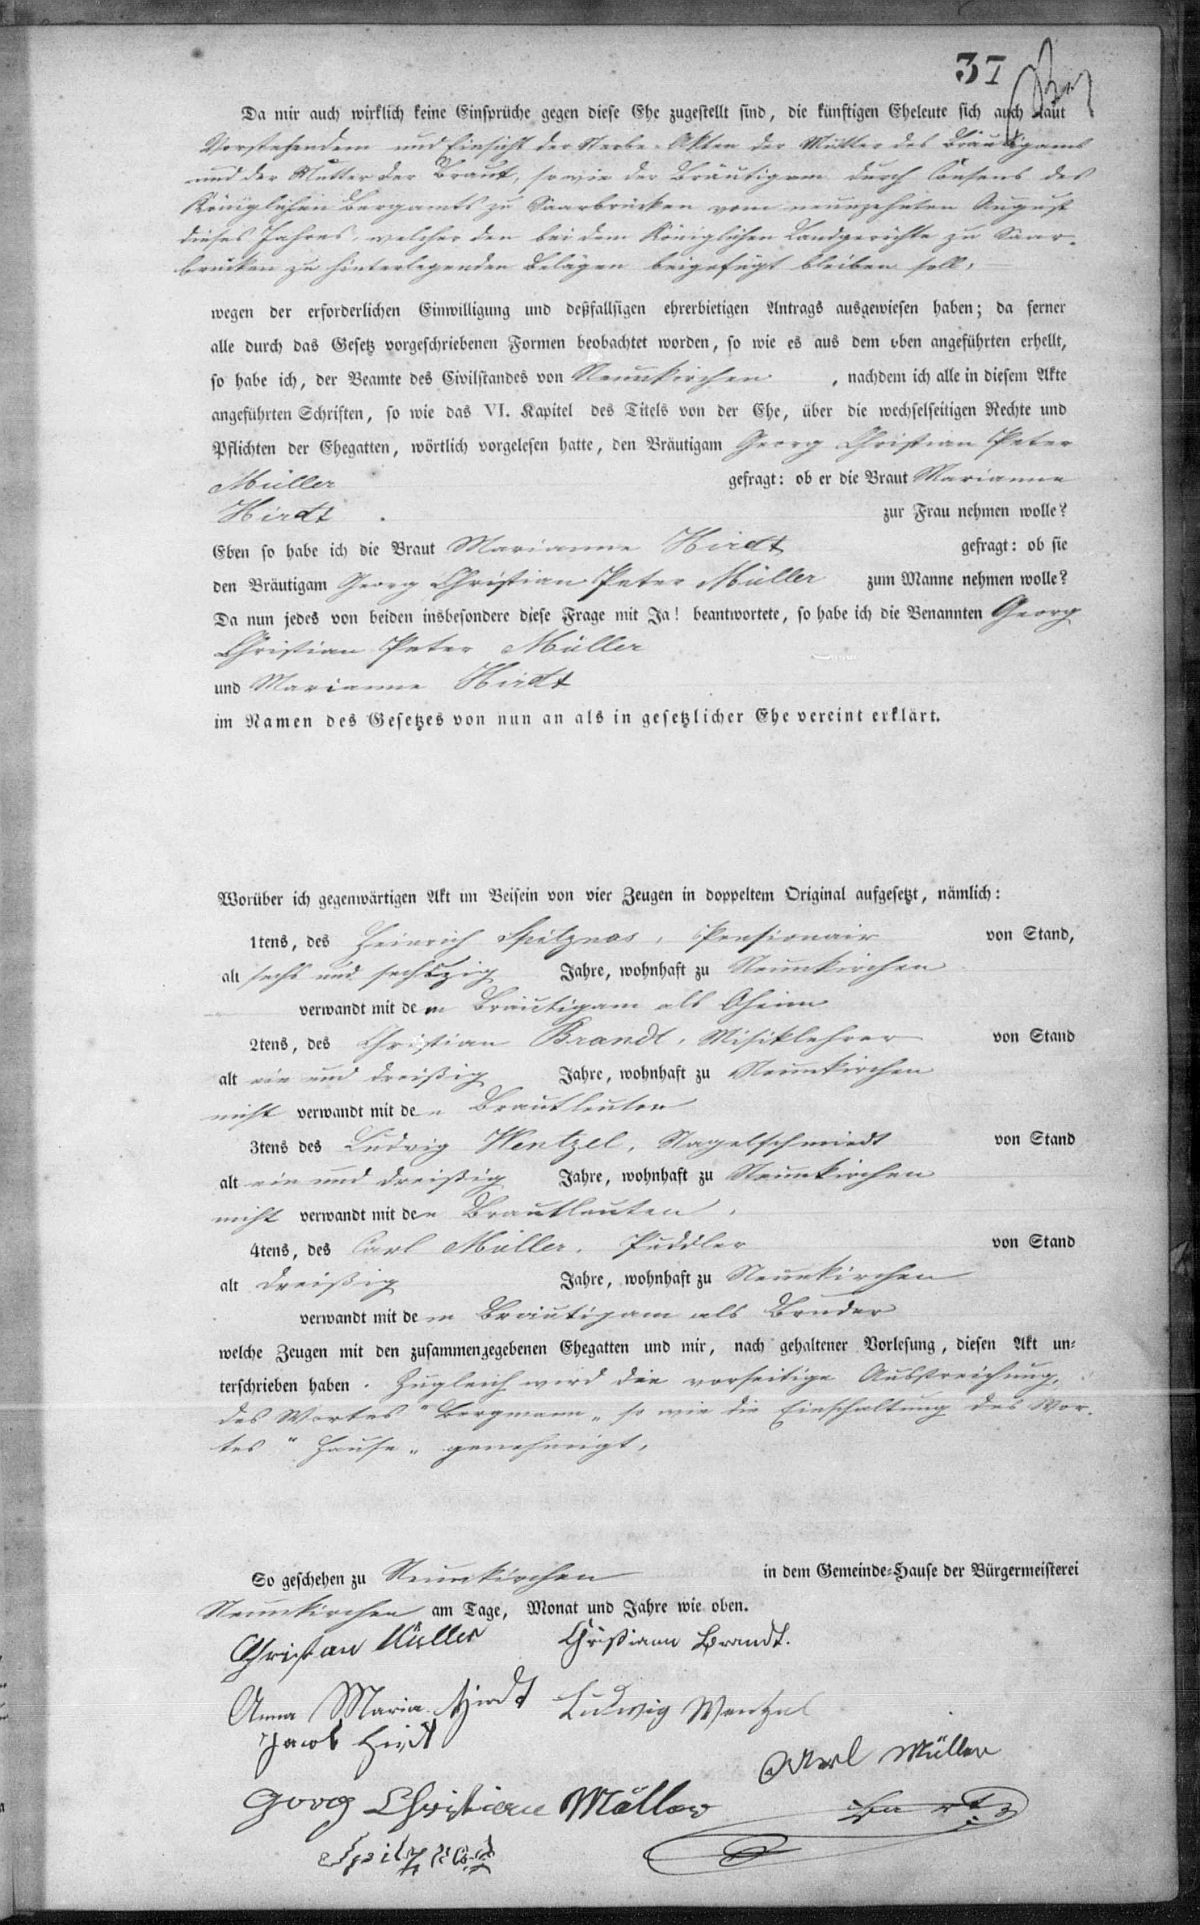 37
Da mir auch wirklich keine Einsprüche gegen diese Ehe zugestellt sind, die künftigen Eheleute sich auch laut
Vorstehendem und Einsicht der Sterbe-Akten der Mutter des Bräutigams
und der Mutter der Braut, sowie der Bräutigam durch Consens des
Königlichen Bergamts zu Saarbrücken vom neunzehnten August
dieses Jahres, welcher den bei dem Königlichen Landgerichte zu Saar-
brücken zu hinterlegenden Belägen beigefügt bleiben soll,
wegen der erforderlichen Einwilligung und deßfallsigen ehrerbietigen Antrags ausgewiesen haben; da ferner
alle durch das Gesetz vorgeschriebenen Formen beobachtet worden, so wie es aus dem oben angeführten erhellt,
so habe ich, der Beamte des Civilstandes von Neunkirchen, nachdem ich alle in diesem Akte
angeführten Schriften, so wie das VI. Kapitel des Titels von der Ehe, über die wechselseitigen Rechte und
Pflichten der Ehegatten, wörtlich vorgelesen hatte, den Bräutigam Georg Christian Peter
Müller gefragt: ob er die Braut Marianne
Hirdt zur Frau nehmen wolle?
Eben so habe ich die Braut Marianne Hirdt gefragt: ob sie
den Bräutigam Georg Christian Peter Müller zum Manne nehmen wolle?
Da nun jedes von beiden insbesondere diese Frage mit Ja! beantwortete, so habe ich die Benannten Georg
Christian Peter Müller
und Marianne Hirdt
im Namen des Gesetzes von nun an als in gesetzlicher Ehe vereint erklärt.
Worüber ich gegenwärtigen Akt im Beisein von vier Zeugen in doppeltem Original aufgesetzt, nämlich:
1tens, des Heinrich Spitznas, Pensionair von Stand,
alt sechs und sechszig Jahre, wohnhaft zu Neunkirchen
verwandt mit dem Bräutigam als Oheim
2tens, des Christian Brandt, Misiklehrer von Stand
alt ein und dreißig Jahre, wohnhaft zu Neunkirchen
nicht verwandt mit den Brautleuten
3tens des Ludwig Wentzel, Nagelschmiedt von Stand
alt ein und dreißig Jahre, wohnhaft zu Neunkirchen
nicht verwandt mit den Brautleuten,
4tens, des Carl Müller, Puddler von Stand
alt dreißig Jahre, wohnhaft zu Neunkirchen
verwandt mit dem Bräutigam als Bruder
welche Zeugen mit den zusammengegebenen Ehegatten und mir, nach gehaltener Vorlesung, diesen Akt un-
terschrieben haben. Zugleich wird die vorseitige Ausstreichung,
des Wortes "Bergmann" so wie die Einschaltung des Wor-
tes "Hause" genehmigt,
So geschehen zu Neunkirchen in dem Gemeinde-Hause der Bürgermeisterei
Neunkirchen am Tage, Monat und Jahre wie oben.
Christian Müller Christiann Brandt.
Anna Maria Hirdt Ludwig Wentzel
Jacob Hirdt
Karl Müller
Georg Christian Müller
Spitznas